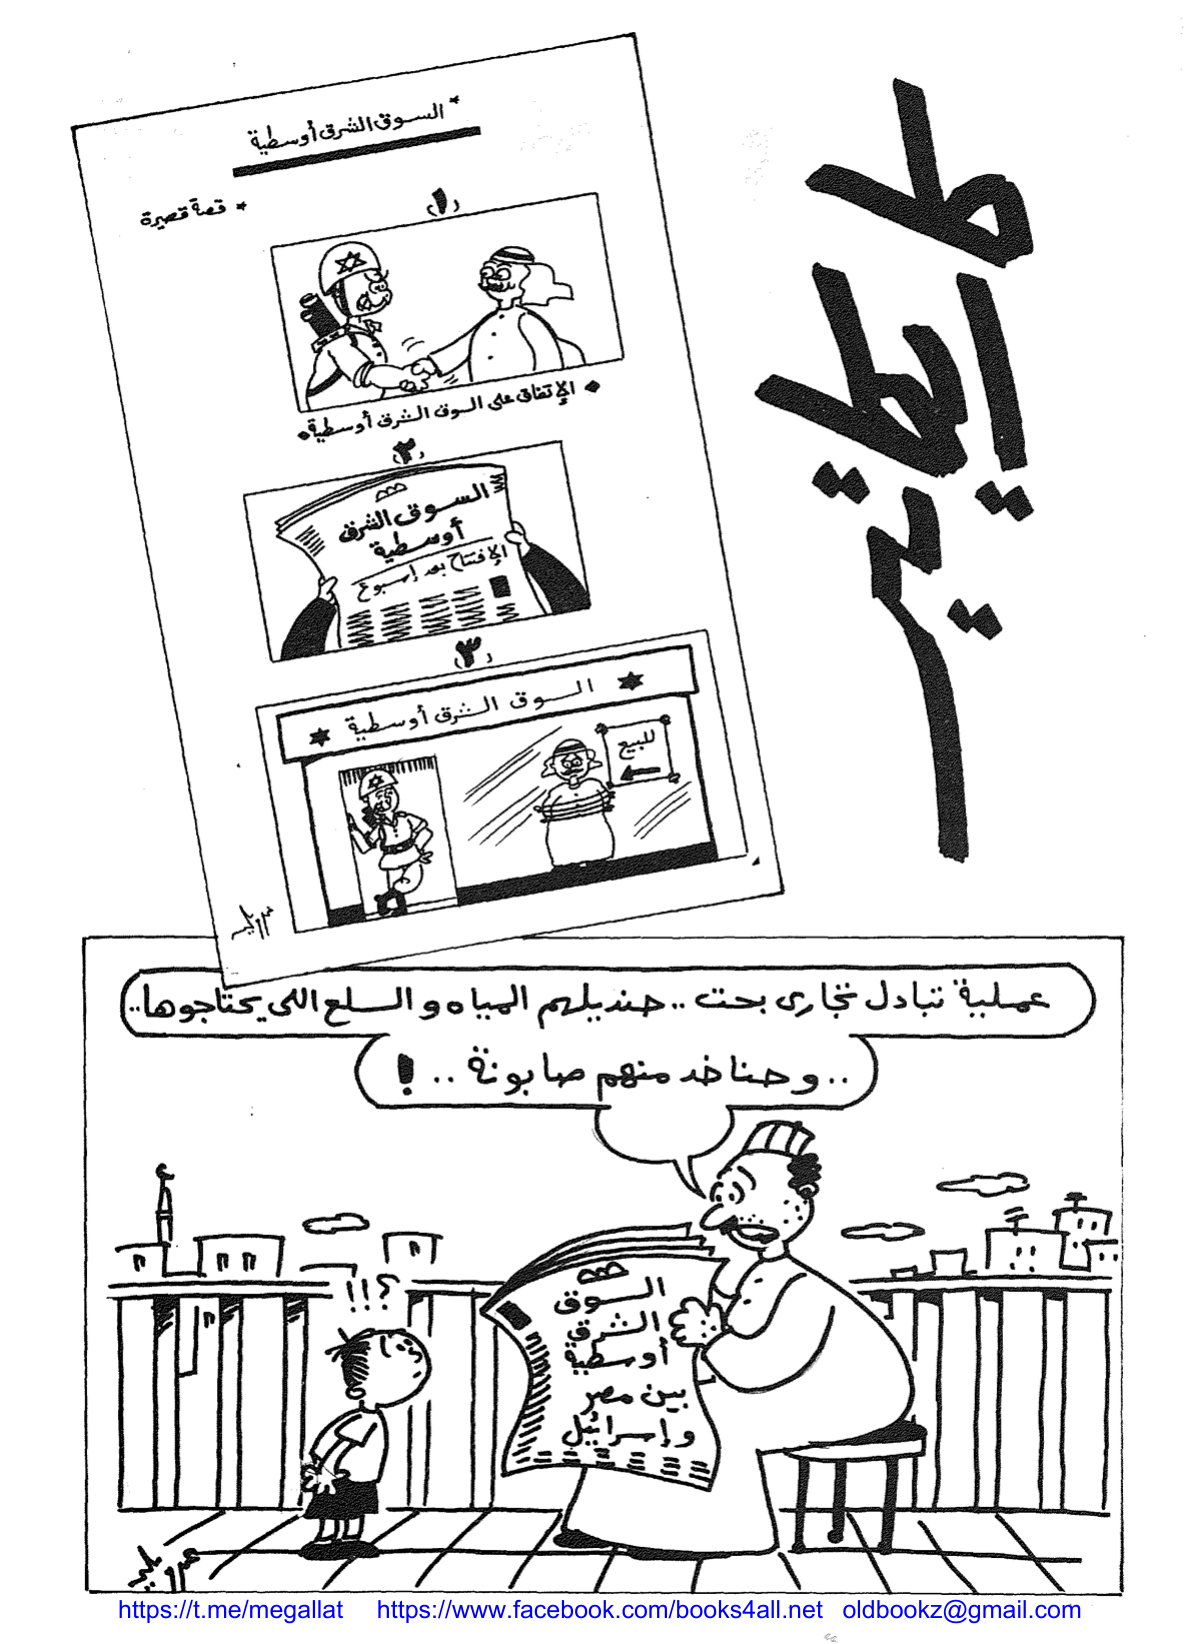 كاريكاتير
* السوق الشرق أوسطية
* قصة قصيرة
(١)
◆ الإتفاق على السوق الشرق أوسطية◆
(٢)
السوق الشرق
أوسطية
الإفتتاح بعد إسبوع
(٣)
السوق الشرق أوسطية
للبيع
عملية تبادل تجارى بحت .. حنديلهم المياه والسلع اللى يحتاجوها..
.. وحناخد منهم صابونة .. !
؟!!
السوق
الشرق
أوسطية
بين مصر
وإسرائيل
https://t.me/megallat https://www.facebook.com/books4all.net oldbookz@gmail.com